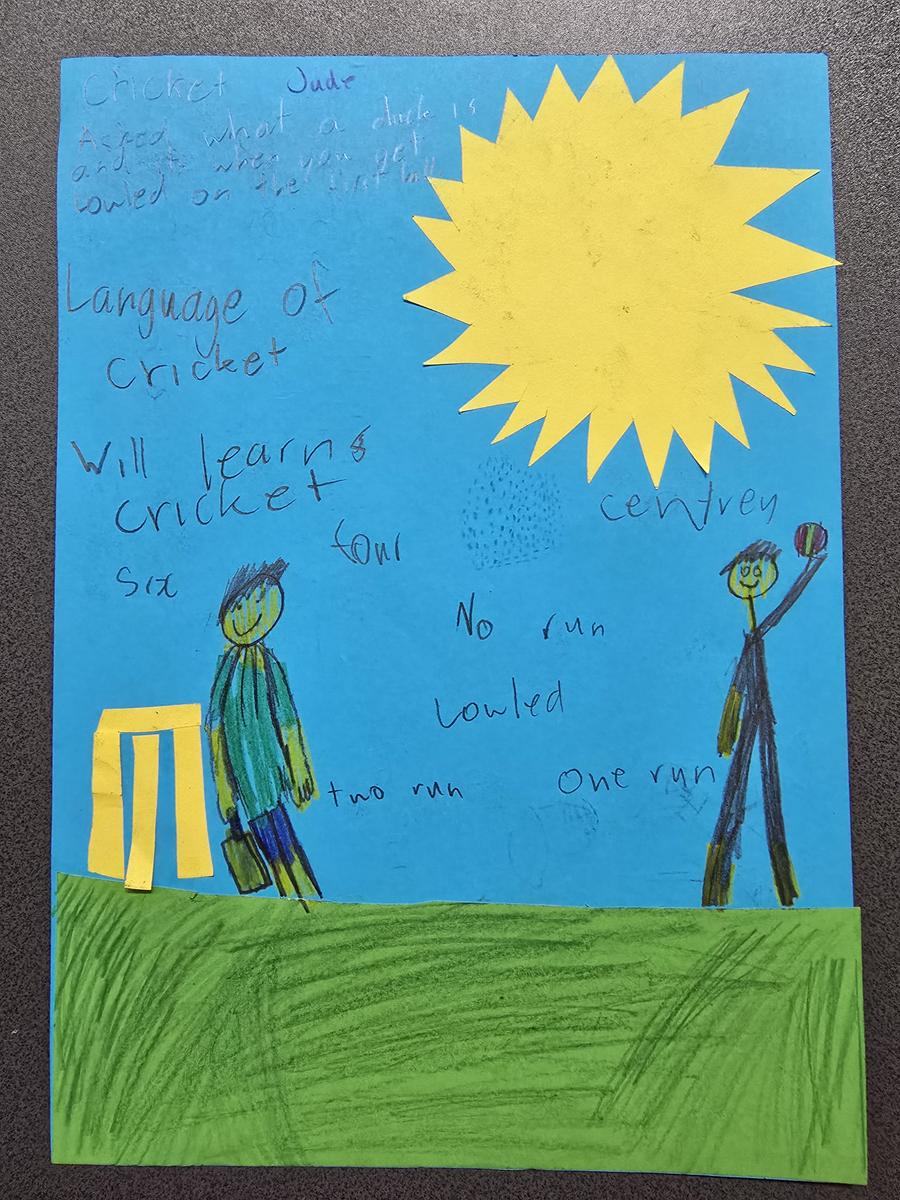 Cricket Jude
Asked what a duck is
and its when you get
bowled on the first ball
Language of
cricket
Will learns
cricket
centrey
four
six
No run
bowled
two run
One run